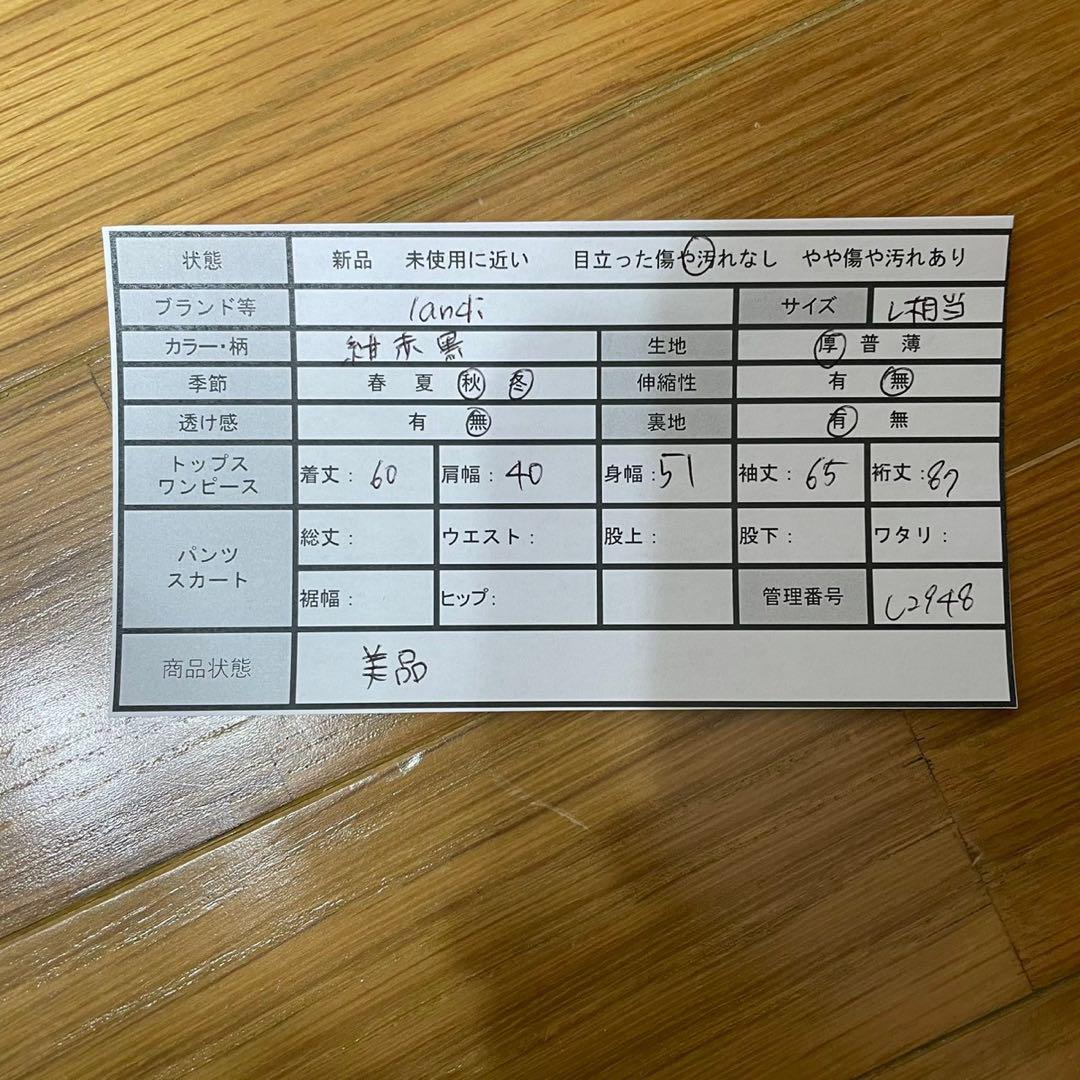 状態 新品 未使用に近い 目立った傷や汚れなし やや傷や汚れあり
ブランド等 landi サイズ L相当
カラー・柄 紺赤黒 生地 厚 普 薄
季節 春 夏 秋 冬 伸縮性 有 無
透け感 有 無 裏地 有 無
トップス
ワンピース
着丈: 60 肩幅: 40 身幅: 51 袖丈: 65 裄丈: 87
パンツ
スカート
総丈: ウエスト: 股上: 股下: ワタリ:
裾幅: ヒップ: 管理番号 し2948
商品状態 美品